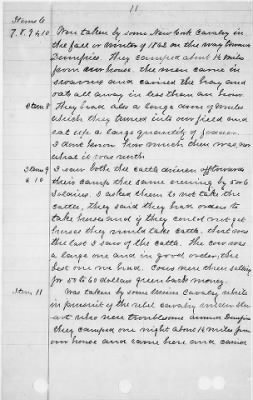 11
Items 6
7. 8. 9 & 10 Was taken by some New York Cavalry in
the fall or winter of 1862 on the way
Dumfries. They camped about 1/2 miles
from our house. the men came in
swarms and carried the hay and
oats all away in less than an hour.
Item 8 They had also a large drove of mules
which they turned into our field and
eat up a large quantity of
I dont know how much there was, nor
what it was worth
Item 9 I saw both the cattle driven off towards
& 10 their camp the same evening by 5 or 6
soldiers. I asked them to not take the
cattle, they said they had orders to
take horses and if they could not get
horses they would take cattle. that was
the last I saw of the cattle. The cow was
a large one and in good order, the
best one we had. Cows were then selling
for 50 to 60 dollars green back money.
Item 11 Was taken by some Union Cavalry while
in pursuit of the rebel cavalry under
who were troublesome around Dumfries
they camped one night about 1/2 miles from
our house and came here and carried